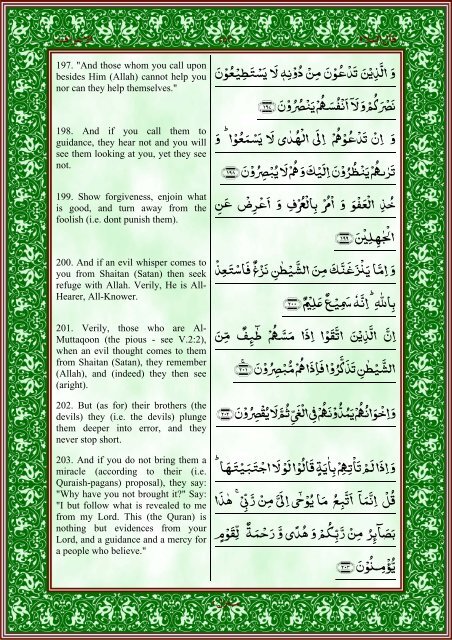 197. "And those whom you call upon
besides Him (Allah) cannot help you
nor can they help themselves."
وَ الَّذِيْنَ تَدْعُوْنَ مِنْ دُوْنِهٖ لَا يَسْتَطِيْعُوْنَ
نَصْرَكُمْ وَلَاۤ اَنْفُسَهُمْ يَنْصُرُوْنَ ﴿۱۹۷﴾
198. And if you call them to
guidance, they hear not and you will
see them looking at you, yet they see
not.
وَ اِنْ تَدْعُوْهُمْ اِلَى الْهُدٰى لَا يَسْمَعُوْا ؕ وَ
تَرٰىهُمْ يَنْظُرُوْنَ اِلَيْكَ وَهُمْ لَا يُبْصِرُوْنَ ﴿۱۹۸﴾
199. Show forgiveness, enjoin what
is good, and turn away from the
foolish (i.e. dont punish them).
خُذِ الْعَفْوَ وَ اْمُرْ بِالْعُرْفِ وَ اَعْرِضْ عَنِ
الْجٰهِلِيْنَ ﴿۱۹۹﴾
200. And if an evil whisper comes to
you from Shaitan (Satan) then seek
refuge with Allah. Verily, He is All-
Hearer, All-Knower.
وَاِمَّا يَنْزَغَنَّكَ مِنَ الشَّيْطٰنِ نَزْغٌ فَاسْتَعِذْ
بِاللّٰهِ ؕ اِنَّهٗ سَمِيْعٌ عَلِيْمٌ ﴿۲۰۰﴾
201. Verily, those who are Al-
Muttaqoon (the pious - see V.2:2),
when an evil thought comes to them
from Shaitan (Satan), they remember
(Allah), and (indeed) they then see
(aright).
اِنَّ الَّذِيْنَ اتَّقَوْا اِذَا مَسَّهُمْ طٰٓئِفٌ مِّنَ
الشَّيْطٰنِ تَذَكَّرُوْا فَاِذَاهُمْ مُّبْصِرُوْنَ ﴿۲۰۱﴾
202. But (as for) their brothers (the
devils) they (i.e. the devils) plunge
them deeper into error, and they
never stop short.
وَاِخْوَانُهُمْ يَمُدُّوْنَهُمْ فِى الْغَىِّ ثُمَّ لَا يُقْصِرُوْنَ ﴿۲۰۲﴾
203. And if you do not bring them a
miracle (according to their (i.e.
Quraish-pagans) proposal), they say:
"Why have you not brought it?" Say:
"I but follow what is revealed to me
from my Lord. This (the Quran) is
nothing but evidences from your
Lord, and a guidance and a mercy for
a people who believe."
وَاِذَا لَمْ تَاْتِهِمْ بِاٰيَةٍ قَالُوْا لَوْ لَا اجْتَبَيْتَهَا ؕ
قُلْ اِنَّمَاۤ اَتَّبِعُ مَا يُوْحٰۤى اِلَىَّ مِنْ رَّبِّىْ ۚ هٰذَا
بَصَآئِرُ مِنْ رَّبِّكُمْ وَ هُدًى وَّ رَحْمَةٌ لِّقَوْمٍ
يُّؤْمِنُوْنَ ﴿۲۰۳﴾